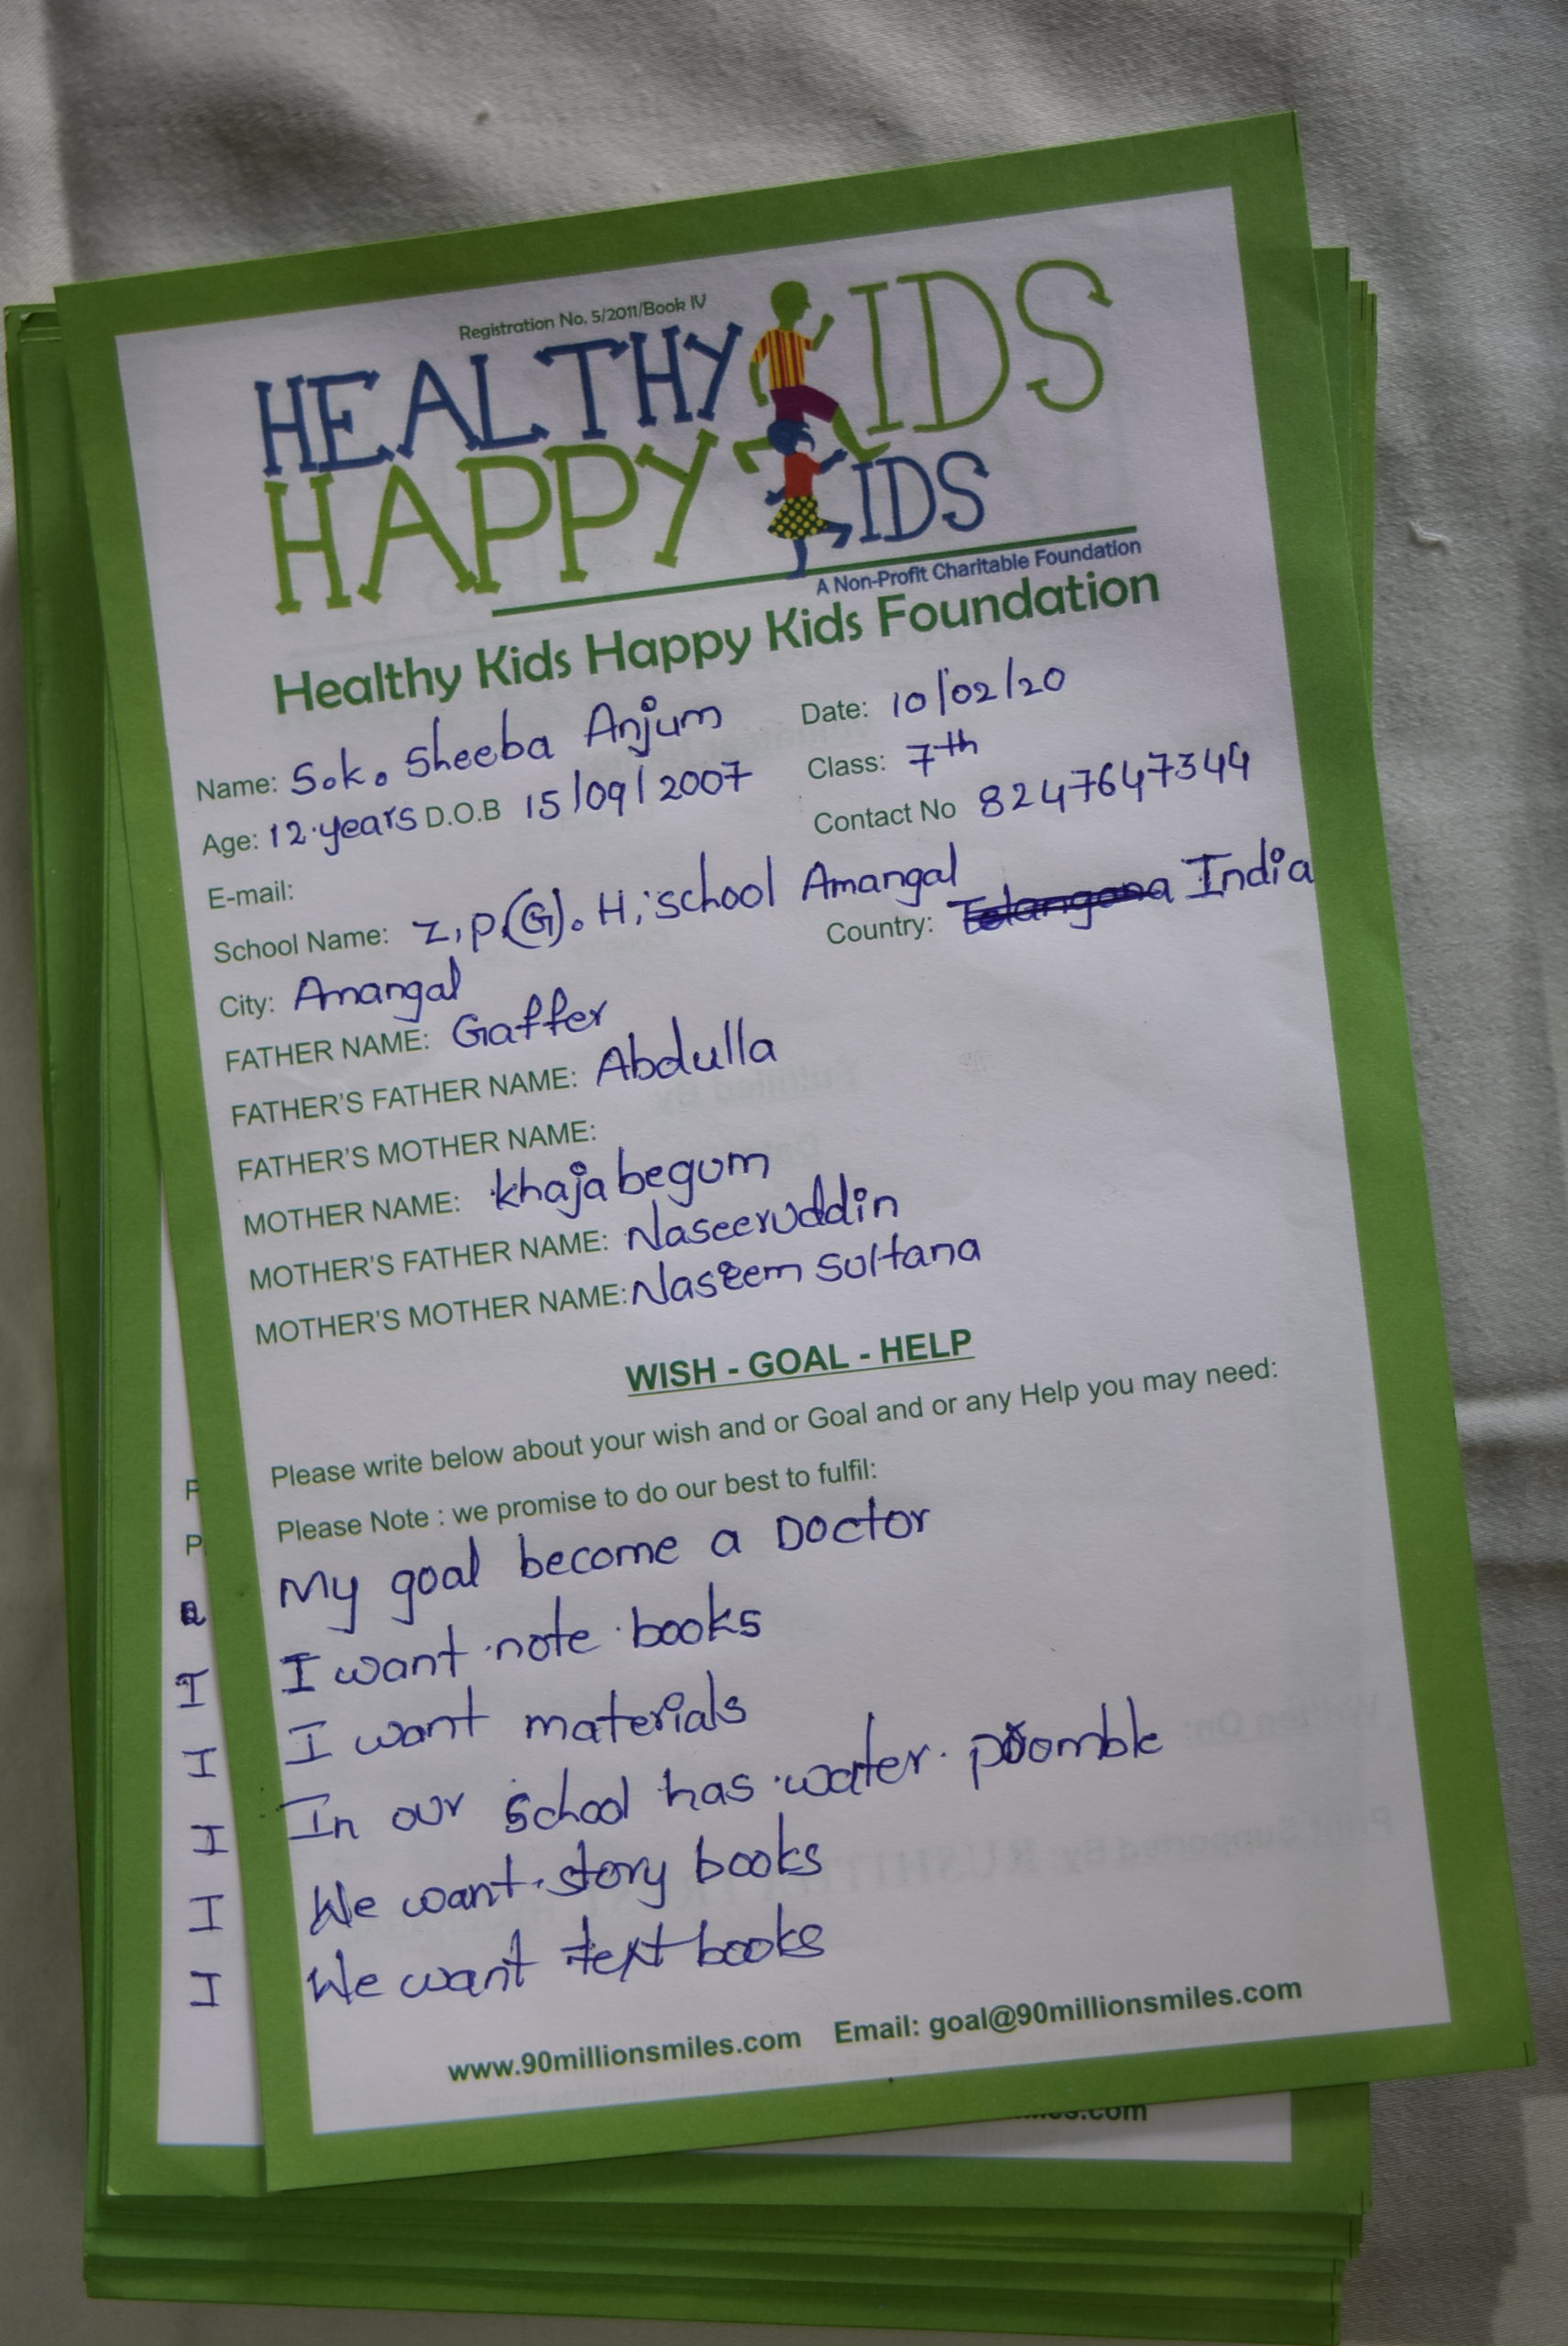 Registration No. 5/2011/Book IV
HEALTHY KIDS
HAPPY KIDS
A Non-Profit Charitable Foundation
Healthy Kids Happy Kids Foundation
Name: S.k. Sheeba Anjum Date: 10/02/20
Age: 12 years D.O.B 15/09/2007 Class: 7th
E-mail: Contact No 8247647344
School Name: Z.P.(G). H. school Amangal
City: Amangal Country: Telangana India
FATHER NAME: Gaffer
FATHER'S FATHER NAME: Abdulla
FATHER'S MOTHER NAME:
MOTHER NAME: khaja begum
MOTHER'S FATHER NAME: Naseeruddin
MOTHER'S MOTHER NAME: Naseem sultana
WISH - GOAL - HELP
Please write below about your wish and or Goal and or any Help you may need:
Please Note : we promise to do our best to fulfil:
My goal become a Doctor
I want note books
I want materials
In our school has water poomble
We want story books
We want text books
www.90millionsmiles.com Email: goal@90millionsmiles.com
P
P
I
I
I
I
I
.com